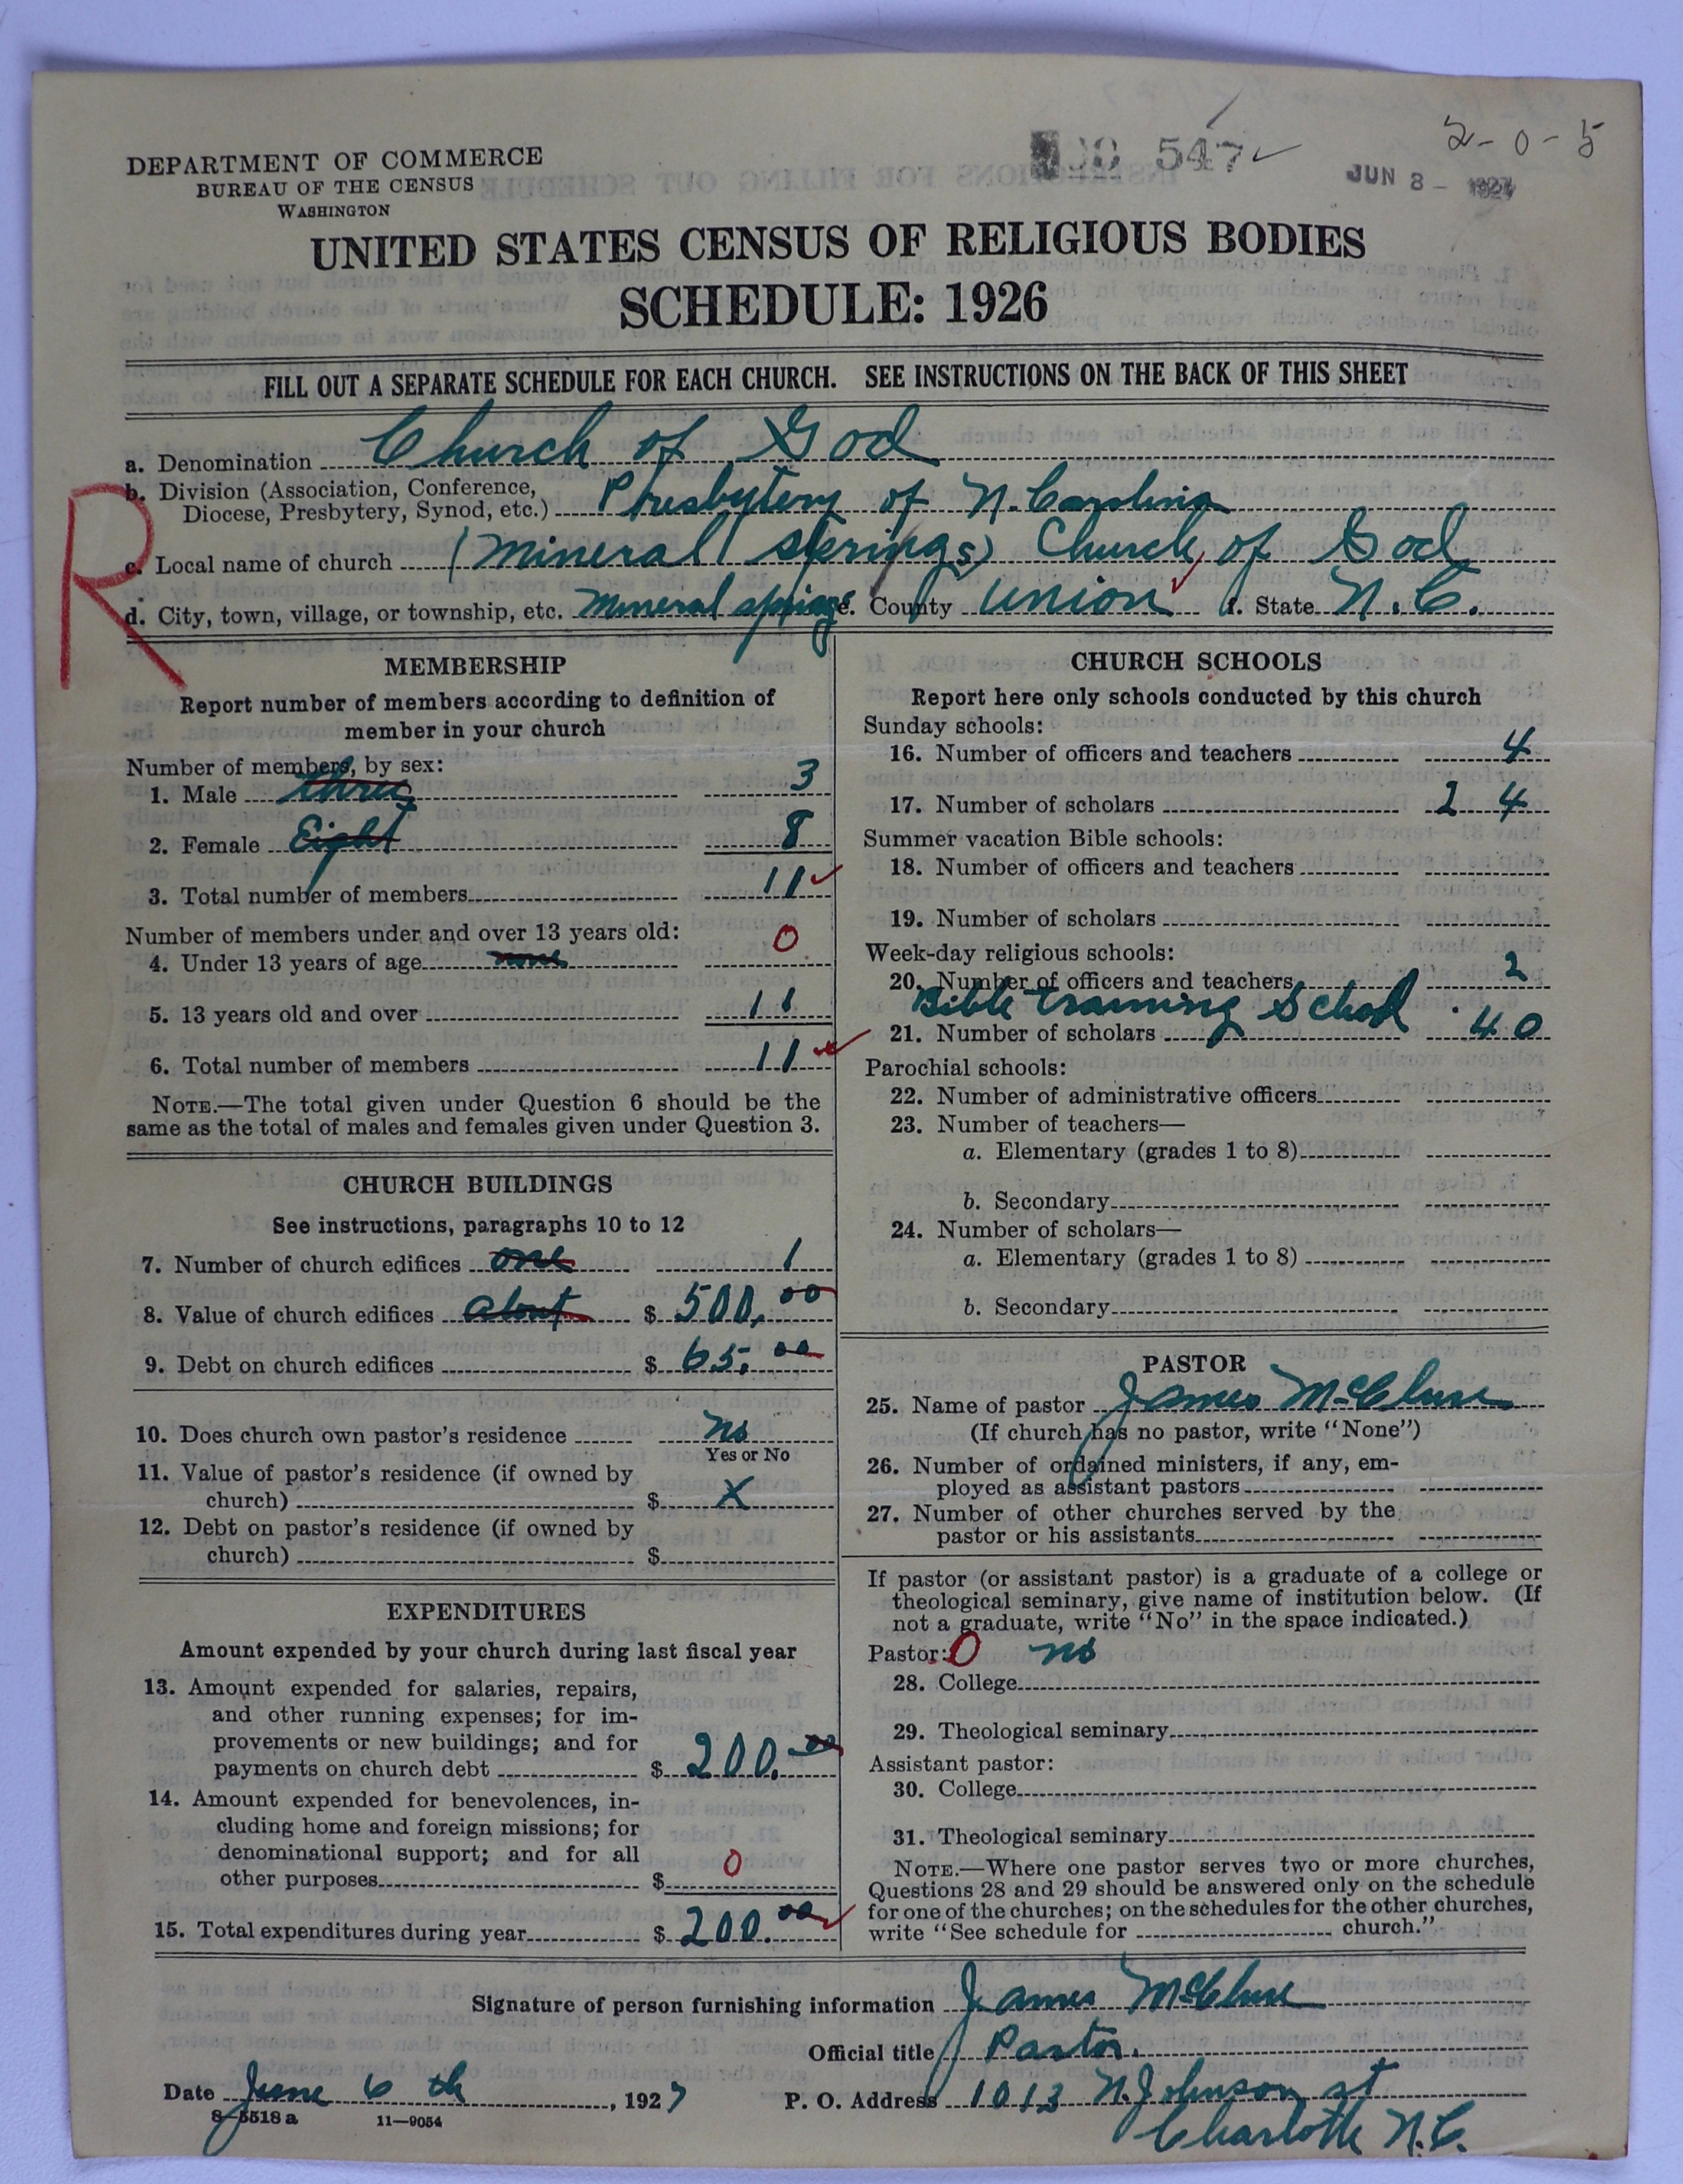 2-0-5
547
JUN 8 - 1927
DEPARTMENT OF COMMERCE
BUREAU OF THE CENSUS
WASHINGTON
UNITED STATES CENSUS OF RELIGIOUS BODIES
SCHEDULE: 1926
FILL OUT A SEPARATE SCHEDULE FOR EACH CHURCH. SEE INSTRUCTIONS ON THE BACK OF THIS SHEET
R
a. Denomination Church of God
b. Division (Association, Conference, Diocese, Presbytery, Synod, etc.) Presbytery of N. Carolina
c. Local name of church (Mineral springs) Church of God
d. City, town, village, or township, etc. Mineral springs e. County Union f. State N.C.
MEMBERSHIP
Report number of members according to definition of
member in your church
Number of members, by sex:
1. Male three 3
2. Female Eight 8
3. Total number of members 11
Number of members under and over 13 years old:
4. Under 13 years of age none 0
5. 13 years old and over 11
6. Total number of members 11
NOTE.—The total given under Question 6 should be the
same as the total of males and females given under Question 3.
CHURCH BUILDINGS
See instructions, paragraphs 10 to 12
7. Number of church edifices one 1
8. Value of church edifices about $ 500.00
9. Debt on church edifices $ 65.00
10. Does church own pastor's residence no
Yes or No
11. Value of pastor's residence (if owned by
church) $ X
12. Debt on pastor's residence (if owned by
church) $
EXPENDITURES
Amount expended by your church during last fiscal year
13. Amount expended for salaries, repairs,
and other running expenses; for im-
provements or new buildings; and for
payments on church debt $ 200.00
14. Amount expended for benevolences, in-
cluding home and foreign missions; for
denominational support; and for all
other purposes $ 0
15. Total expenditures during year $ 200.00
CHURCH SCHOOLS
Report here only schools conducted by this church
Sunday schools:
16. Number of officers and teachers 4
17. Number of scholars 24
Summer vacation Bible schools:
18. Number of officers and teachers
19. Number of scholars
Week-day religious schools:
20. Number of officers and teachers 2
Bible training School
21. Number of scholars 40
Parochial schools:
22. Number of administrative officers
23. Number of teachers—
a. Elementary (grades 1 to 8)
b. Secondary
24. Number of scholars—
a. Elementary (grades 1 to 8)
b. Secondary
PASTOR
25. Name of pastor James McClure
(If church has no pastor, write "None")
26. Number of ordained ministers, if any, em-
ployed as assistant pastors
27. Number of other churches served by the
pastor or his assistants
If pastor (or assistant pastor) is a graduate of a college or
theological seminary, give name of institution below. (If
not a graduate, write "No" in the space indicated.)
Pastor: 0 no
28. College
29. Theological seminary
Assistant pastor:
30. College
31. Theological seminary
NOTE.—Where one pastor serves two or more churches,
Questions 28 and 29 should be answered only on the schedule
for one of the churches; on the schedules for the other churches,
write "See schedule for church."
Signature of person furnishing information James McClure
Official title Pastor.
Date June 6 th, 1927 P. O. Address 1013 N. Johnson st
8-5518 a 11-9054 Charlotte N.C.